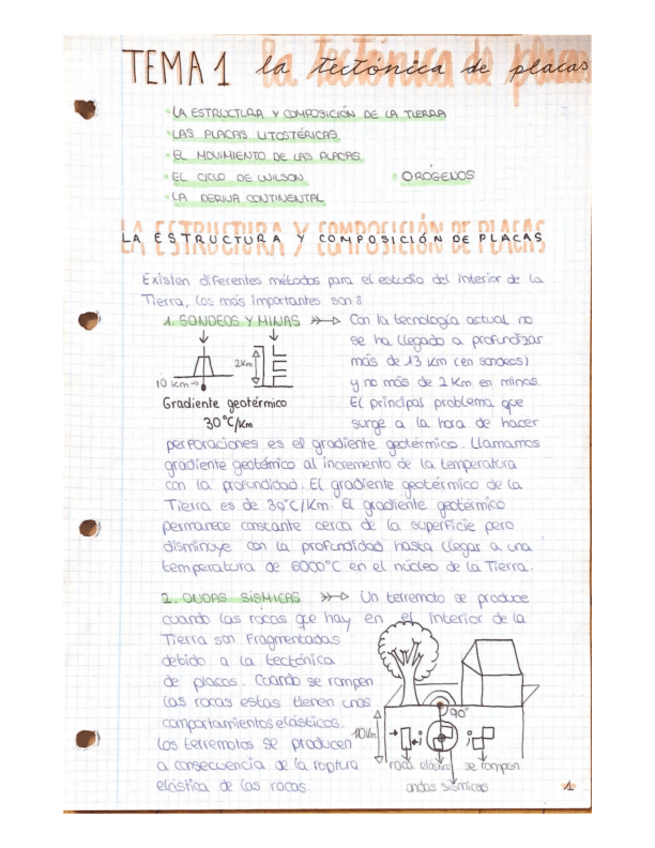 TEMA 1 la tectónica de placas
• LA ESTRUCTURA Y COMPOSICIÓN DE LA TIERRA
• LAS PLACAS LITOSTÉRICAS
• EL MOVIMIENTO DE LAS PLACAS
• EL CICLO DE WILSON
• OROGENOS
• LA DERIVA CONTINENTAL
LA ESTRUCTURA Y COMPOSICIÓN DE PLACAS
Existen diferentes métodos para el estudio del interior de la
Tierra, los más importantes son:
1. SONDEOS Y MINAS
Con la tecnología actual no
se ha llegado a profundizar
más de 13 km (en sondeos)
y no más de 2 Km en minas.
El principal problema que
surge a la hora de hacer
2Km
10 km
Gradiente geotérmico
30°C/Km
perforaciones es el gradiente geotérmico. Llamamos
gradiente geotérmico al incremento de la temperatura
con la profundidad. El gradiente geotérmico de la
Tierra es de 30°C/Km. El gradiente geotérmico
permanece constante cerca de la superficie pero
disminuye con la profundidad hasta llegar a una
temperatura de 6000°C en el núcleo de la Tierra.
2. ONDAS SÍSMICAS
Un terremoto se produce
cuando las rocas que hay en el interior de la
Tierra son Fragmentadas
debido a la tectónica
de placas. Cuando se rompen
las rocas estas tienen unos
comportamientos elásticos.
Los terremotos se producen
a consecuencia de la ruptura
elástica de las rocas.
90°
10Km
roca elástica se rompen
ondas sísmicas
1